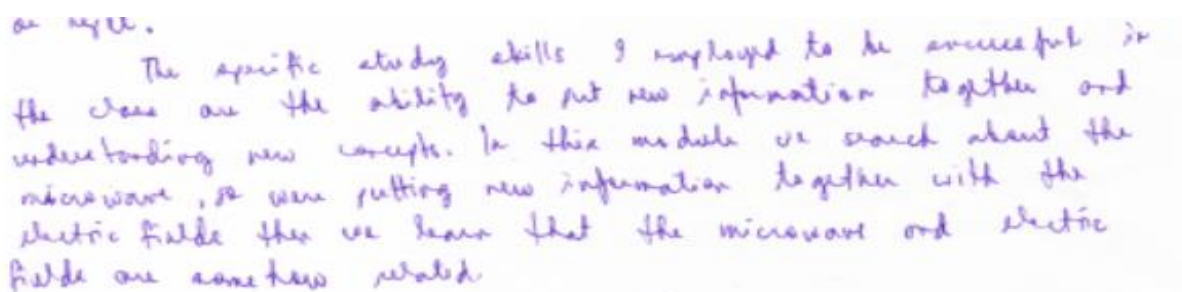 The specific study skills I employed to be successful in
the class are the ability to put new information together and
understanding new concepts. In this module we search about the
microwave, so were putting new information together with the
electric fields then we learn that the microwave and electric
fields are somehow related.